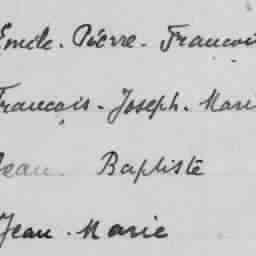 Emile. Pierre. Francoi
Francois. Joseph. Mari
Jean. Baptiste
Jean. Marie